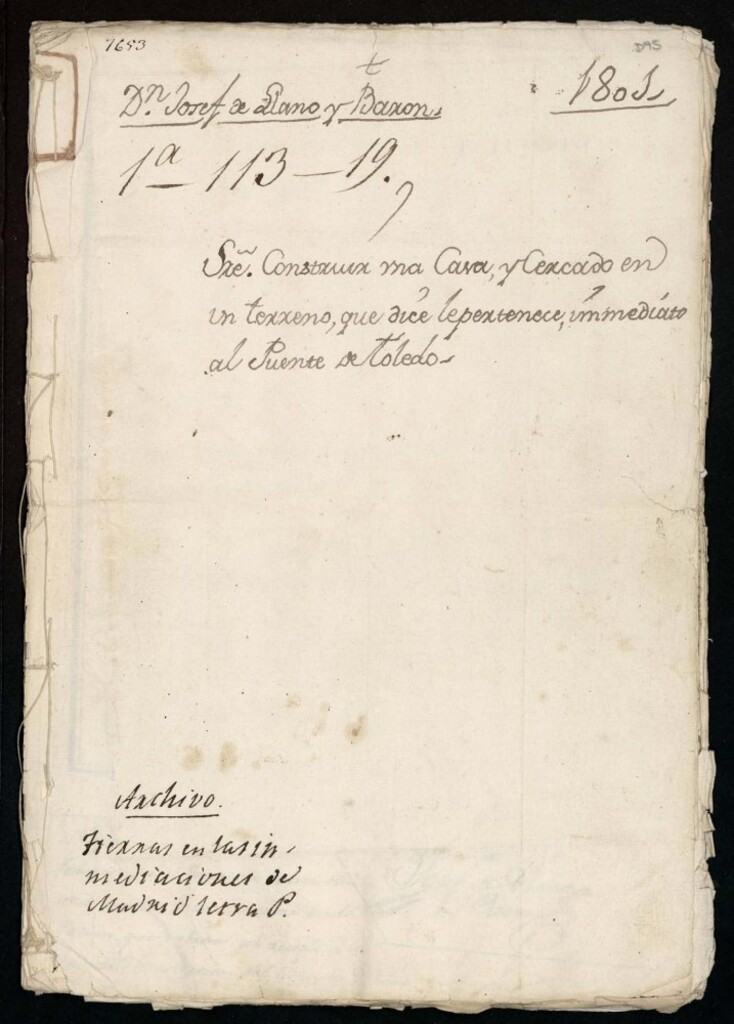 7653
D95
†
Dn. Josef de Llano y Baron.
1801
1a — 113 — 19.
Sre. Construir una Casa, y Cercado en
un terreno, que dice le pertenece, immediato
al Puente de Toledo
Archivo.
Tierras en las in-
mediaciones de
Madrid letra P.